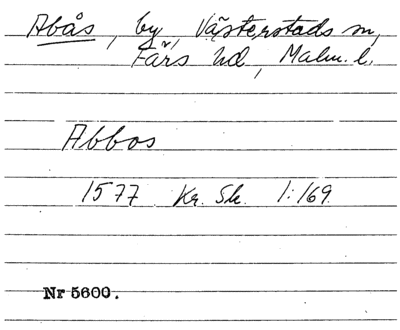 Abås, by, Västerstads sn,
Färs hd, Malm. l.
Abbos
1577 Kr. Sk. 1:169
Nr 5600.